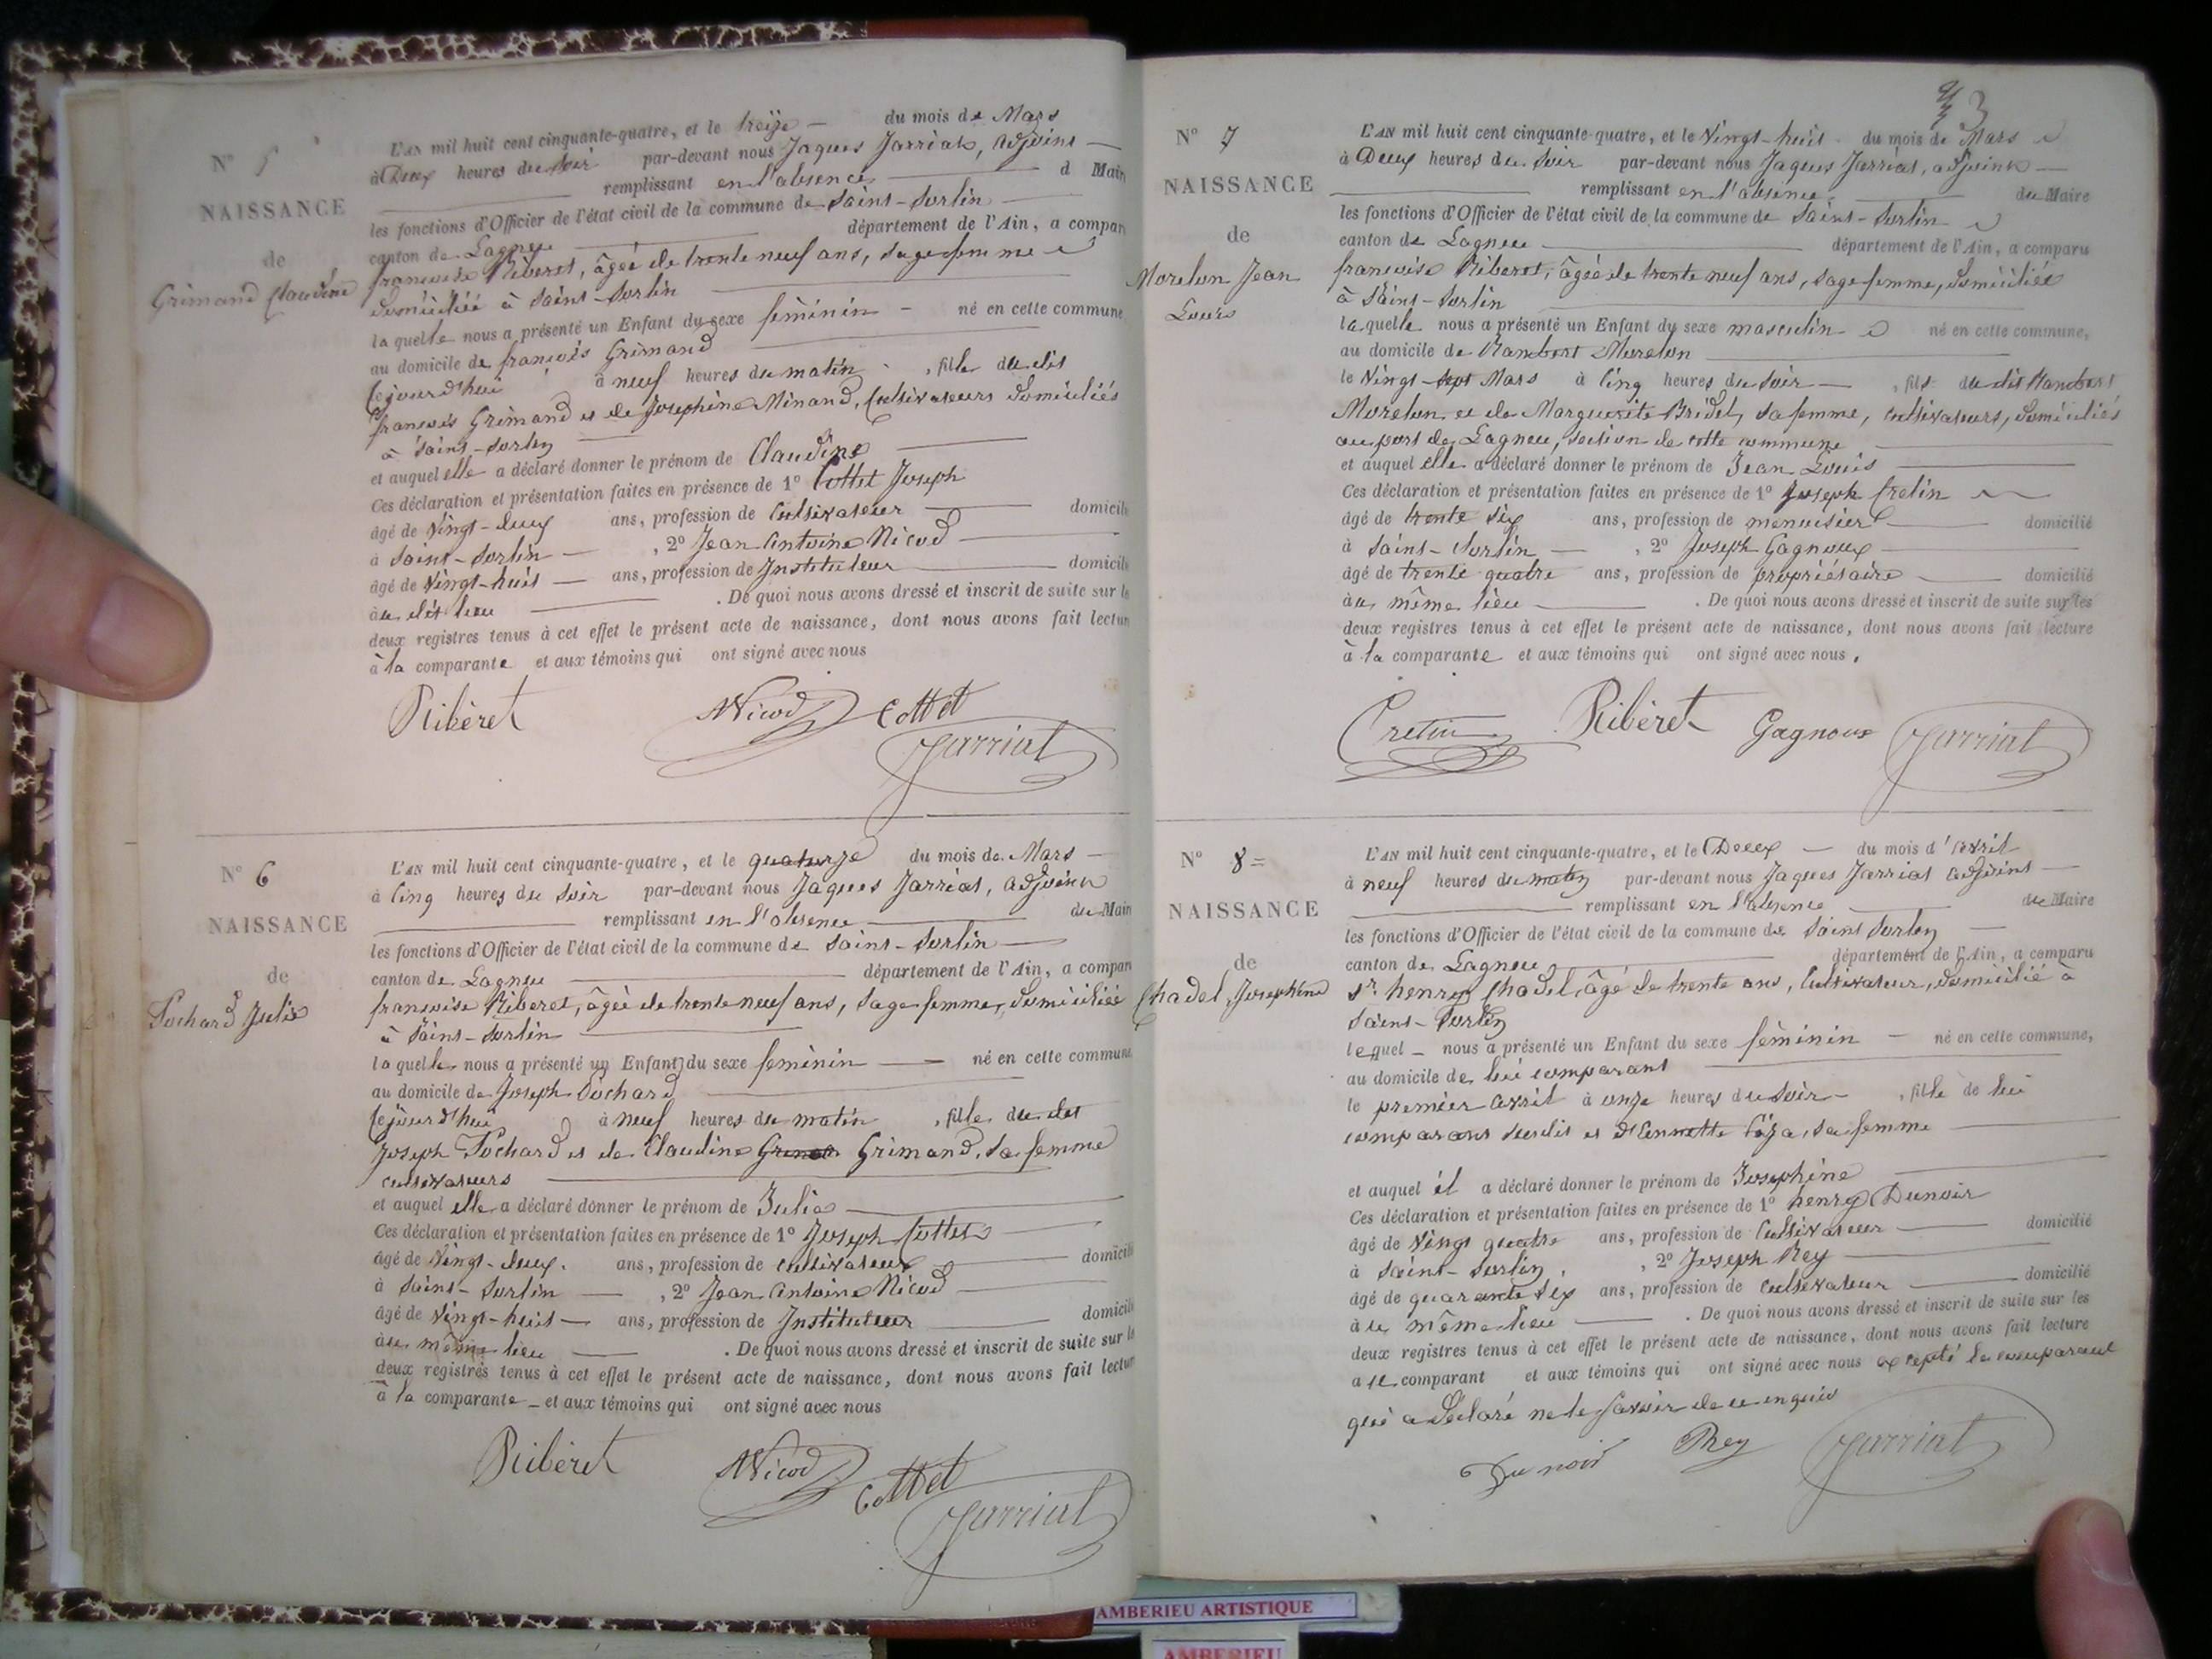 N° 5
NAISSANCE
de
Grimand Claudine
L'AN mil huit cent cinquante-quatre, et le treize du mois de Mars
à Deux heures du Soir par-devant nous Jaques Jarriat, adjoint
remplissant en l'absence d Mair
les fonctions d'Officier de l'état civil de la commune de Saint-Sorlin
canton de Lagnieu département de l'Ain, a compar
françoise Riberet, âgée de trente neuf ans, sage femme
domiciliée à Saint-Sorlin
laquelle nous a présenté un Enfant du sexe féminin né en cette commune
au domicile de françois Grimand
Cejourd'hui à neuf heures du matin, fille du dit
françois Grimand et de Josephine Minand, Cultivateurs domiciliés
à Saint-Sorlin
et auquel elle a déclaré donner le prénom de Claudine
Ces déclaration et présentation faites en présence de 1° Cottet Joseph
âgé de Vingt-deux ans, profession de Cultivateur domicili
à Saint-Sorlin, 2° Jean Antoine Nicod
âgé de Vingt-huit ans, profession de Instituteur domicili
au dit lieu. De quoi nous avons dressé et inscrit de suite sur le
deux registres tenus à cet effet le présent acte de naissance, dont nous avons fait lectur
à la comparante et aux témoins qui ont signé avec nous
Ribèret Nicod Cottet
Jarriat
N° 6
NAISSANCE
de
Pochard Julie
L'AN mil huit cent cinquante-quatre, et le quatorze du mois de Mars
à Cinq heures du Soir par-devant nous Jaques Jarriat, adjoint
remplissant en l'absence du Mair
les fonctions d'Officier de l'état civil de la commune de Saint-Sorlin
canton de Lagnieu département de l'Ain, a compar
françoise Riberet, âgée de trente neuf ans, sage femme, domiciliée
à Saint-Sorlin
laquelle nous a présenté un Enfant du sexe féminin né en cette commune
au domicile de Joseph Pochard
Cejourd'hui à neuf heures du matin, fille du dit
Joseph Pochard et de Claudine Grimand, sa femme
cultivateurs
et auquel elle a déclaré donner le prénom de Julie
Ces déclaration et présentation faites en présence de 1° Joseph Cottet
âgé de Vingt-deux. ans, profession de cultivateur domicili
à Saint-Sorlin, 2° Jean Antoine Nicod
âgé de Vingt-huit ans, profession de Instituteur domicili
au même lieu. De quoi nous avons dressé et inscrit de suite sur le
deux registres tenus à cet effet le présent acte de naissance, dont nous avons fait lectur
à la comparante et aux témoins qui ont signé avec nous
Ribèret Nicod Cottet
Jarriat
3
N° 7
NAISSANCE
de
Morelon Jean
Louis
L'AN mil huit cent cinquante-quatre, et le Vingt-huit du mois de Mars
à Deux heures du Soir par-devant nous Jaques Jarriat, adjoint
remplissant en l'absence du Maire
les fonctions d'Officier de l'état civil de la commune de Saint-Sorlin
canton de Lagnieu département de l'Ain, a comparu
françoise Riberet, âgée de trente neuf ans, sage femme, domiciliée
à Saint-Sorlin
laquelle nous a présenté un Enfant du sexe masculin né en cette commune,
au domicile de Rambert Morelon
le Vingt-sept Mars à Cinq heures du Soir, fils du dit Rambert
Morelon et de Marguerite Bridel, sa femme, cultivateurs, domiciliés
au port de Lagnieu, section de cette commune
et auquel elle a déclaré donner le prénom de Jean Louis
Ces déclaration et présentation faites en présence de 1° Joseph Cretin
âgé de trente six ans, profession de menuisier domicilié
à Saint-Sorlin, 2° Joseph Gagnoux
âgé de trente quatre ans, profession de propriétaire domicilié
au même lieu. De quoi nous avons dressé et inscrit de suite sur les
deux registres tenus à cet effet le présent acte de naissance, dont nous avons fait lecture
à la comparante et aux témoins qui ont signé avec nous.
Cretin Ribèret Gagnoux Jarriat
N° 8=
NAISSANCE
de
Chadel Josephine
L'AN mil huit cent cinquante-quatre, et le Deux du mois d'avril
à neuf heures du matin par-devant nous Jaques Jarriat adjoint
remplissant en l'absence du Maire
les fonctions d'Officier de l'état civil de la commune de Saint Sorlin
canton de Lagnieu département de l'Ain, a comparu
Sr. henry Chadel, âgé de trente ans, Cultivateur, domicilié à
Saint-Sorlin
lequel nous a présenté un Enfant du sexe féminin né en cette commune,
au domicile de lui comparant
le premier avril à onze heures du Soir, fille de lui
comparant susdit et sa femme
et auquel il a déclaré donner le prénom de Josephine
Ces déclaration et présentation faites en présence de 1° henry Dunoir
âgé de Vingt quatre ans, profession de Cultivateur domicilié
à Saint-Sorlin, 2° Joseph Rey
âgé de quarante six ans, profession de cultivateur domicilié
au même lieu. De quoi nous avons dressé et inscrit de suite sur les
deux registres tenus à cet effet le présent acte de naissance, dont nous avons fait lecture
au comparant et aux témoins qui ont signé avec nous excepté le comparant
qui a déclaré ne le savoir de ce enquis
Dunoir Rey Jarriat
AMBERIEU ARTISTIQUE
AMBERIEU